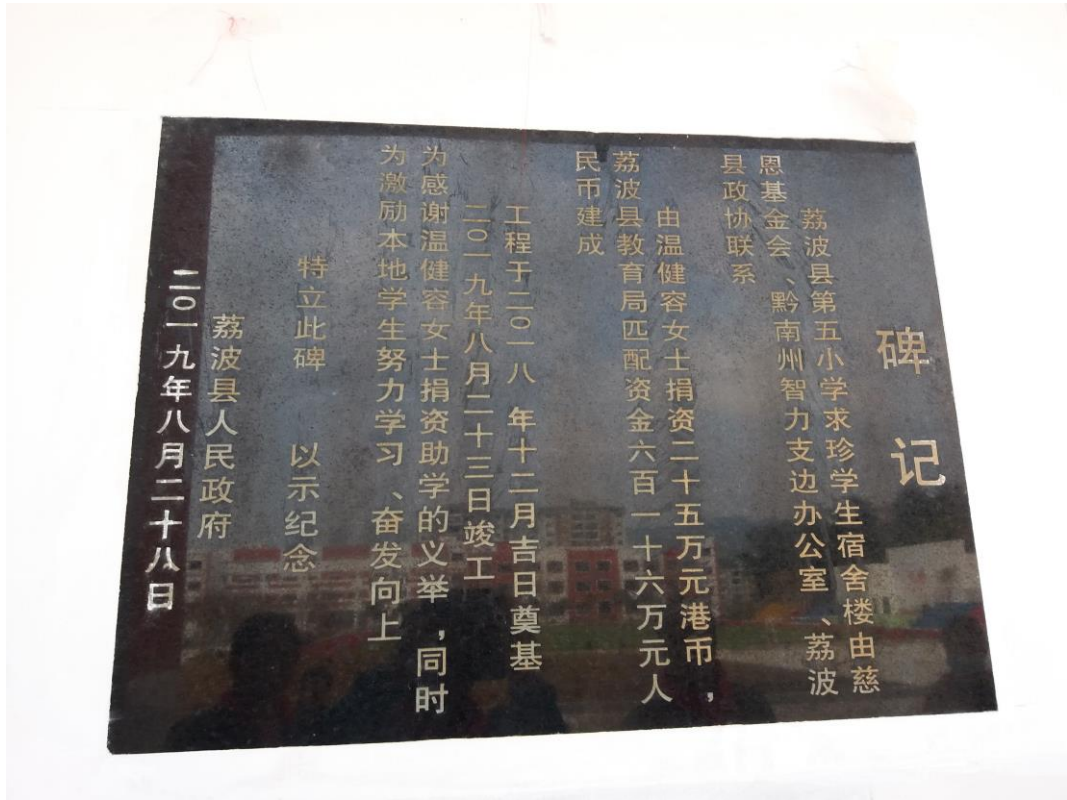 碑记
荔波县第五小学求珍学生宿舍楼由慈
恩基金会、黔南州智力支边办公室、荔波
县政协联系
由温健容女士捐资二十五万元港币，
荔波县教育局匹配资金六百一十六万元人
民币建成
工程于二〇一八 年十二月吉日奠基
二〇一九年八月二十三日竣工
为感谢温健容女士捐资助学的义举，同时
为激励本地学生努力学习、奋发向上
特立此碑 以示纪念
荔波县人民政府
二〇一九年八月二十八日